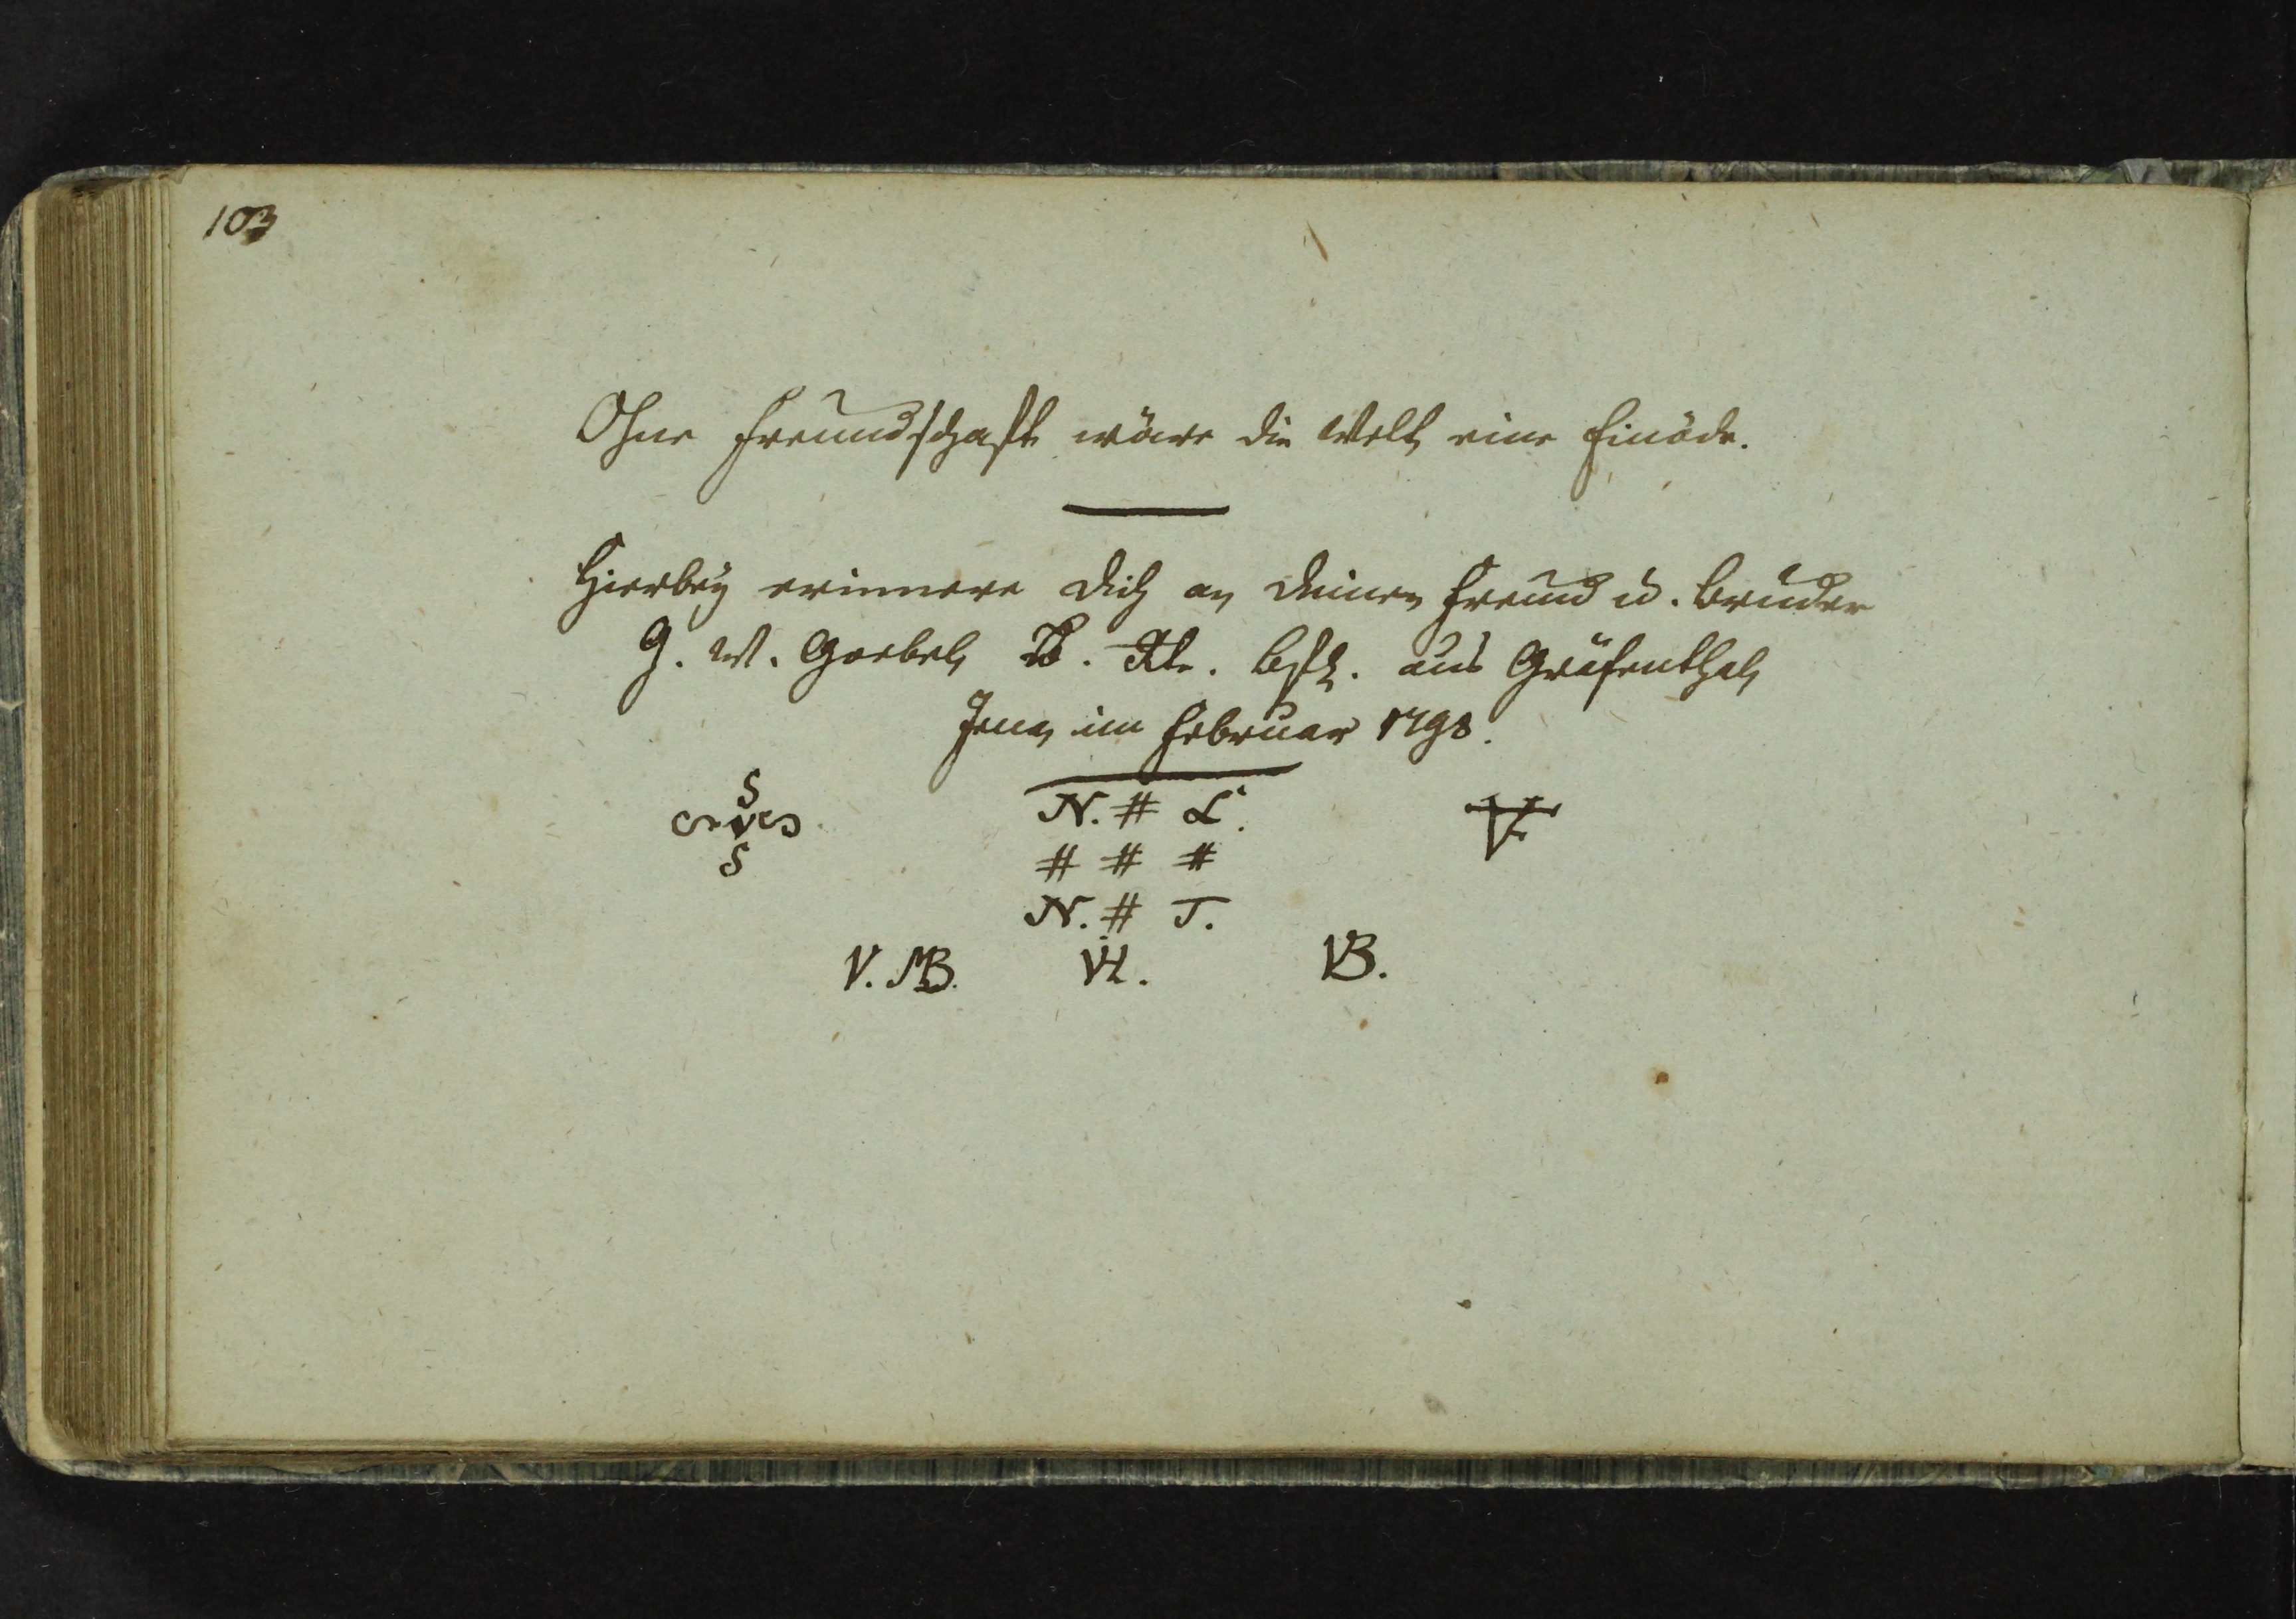 103
Ohne Freundschaft wäre die Welt eine Einöde.
Hierbey erinnere dich an deinen Freund u. Bruder
G. W. Goebel d. Rte. Bfl. aus Gräfenthal
Jena im Februar 1798.
S
S V S
S
N. # L.
# # #
N. # T.
V. MB. VH. VB.